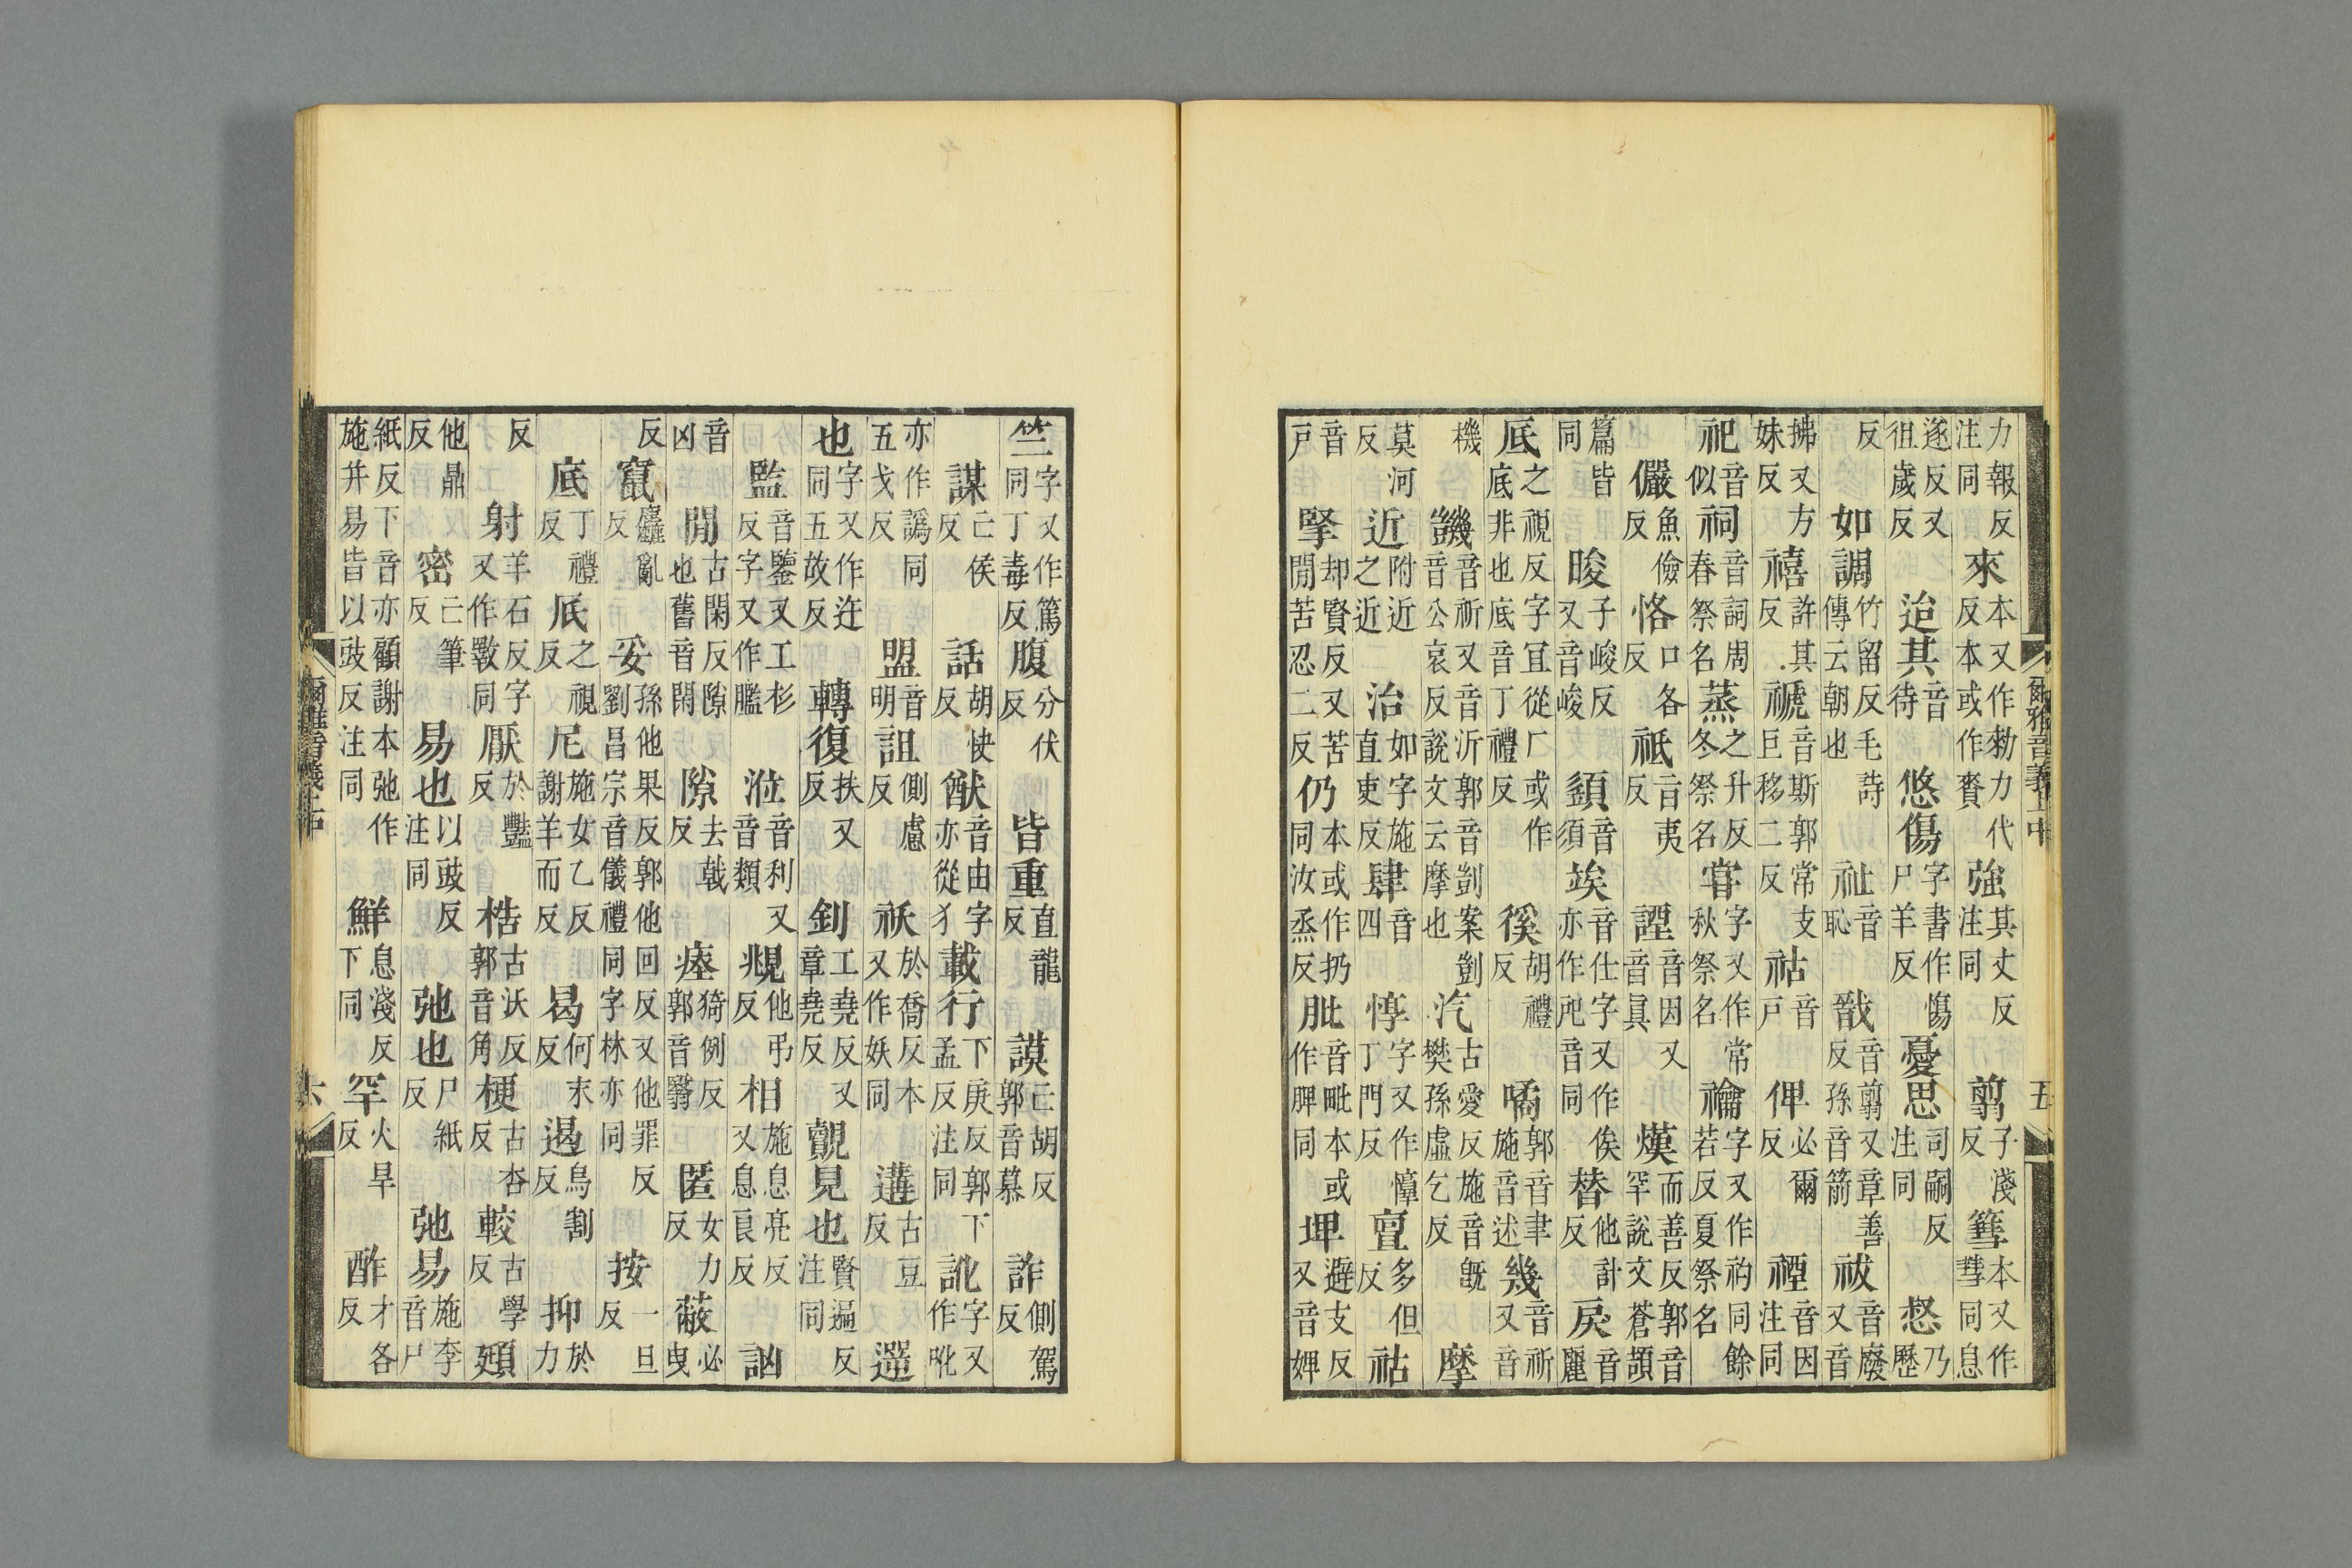 爾雅音義上中 五
力報反注同來本又作勑力代反本或作賚強其丈反注同翦子淺反篲本又作彗同息
遂反又徂歲反迨其音待悠傷字書作慯尸羊反憂思司嗣反注同惄乃歷
反如調竹留反毛詩傳云朝也祉音恥戩音翦又章善反孫音箭祓音廢又音
拂又方妹反禧許其反禠音斯郭常支巨移二反祜音戶俾必爾反禋音因注同
祀音似祠音詞周春祭名蒸之升反冬祭名甞字又作常秋祭名禴字又作礿同餘若反夏祭名
儼魚儉反恪口各反祗音夷反諲音因又音真熯而善反郭音罕說文蒼頡
篇皆同畯子峻反又音峻䇓音須竢音仕字又作俟亦作音同替他計反戾音麗
厎之視反字宜從厂或作底非也底音丁禮反徯胡禮反噊郭音聿施音述幾音祈又音
機音祈又音沂郭音剴案剴音公哀反說文云摩也汽古愛反施音旣樊孫虛乞反摩
莫河反近附近之近治如字施直吏反肆音四惇字又作憞丁門反亶多但反祜
音戶掔却賢反又苦閒苦忍二反仍本或作扔同汝烝反肶音毗本或作脾同埤避支反又音婢
竺字又作篤同丁毒反腹分伏反皆重直龍反謨亡胡反郭音慕詐側駕反
謀亡侯反話胡快反猷音由字亦從犭載行下庚反郭下孟反注同訛字又作吪
亦作譌同五戈反盟音明詛側慮反祅於喬反本又作妖同遘古豆反遻
也字又作迕同五故反轉復扶又反釗工堯反又章堯反覿見也賢遍反注同
監音鑒又工杉反字又作艦涖音利又音類覜他弔反相施息亮反又息良反訩
音凶閒古閑反隙也舊音閑隙去戟反瘞猗例反郭音翳匿女力反蔽必曳
反竄麤亂反妥孫他果反郭他回反又他罪反劉昌宗音儀禮同字林亦同按一旦反
底丁禮反厎之視反尼施女乙反謝羊而反曷何末反遏烏割反抑於力
反射羊石反字又作斁同厭於豔反梏古沃反郭音角梗古杏反較古學反頲
他鼎反密亡筆反易也以豉反注同弛也尸紙反弛易施李音尸
紙反下音亦顧謝本弛作施并易皆以豉反注同鮮息淺反下同罕火旱反酢才各反
爾雅音義上中 六